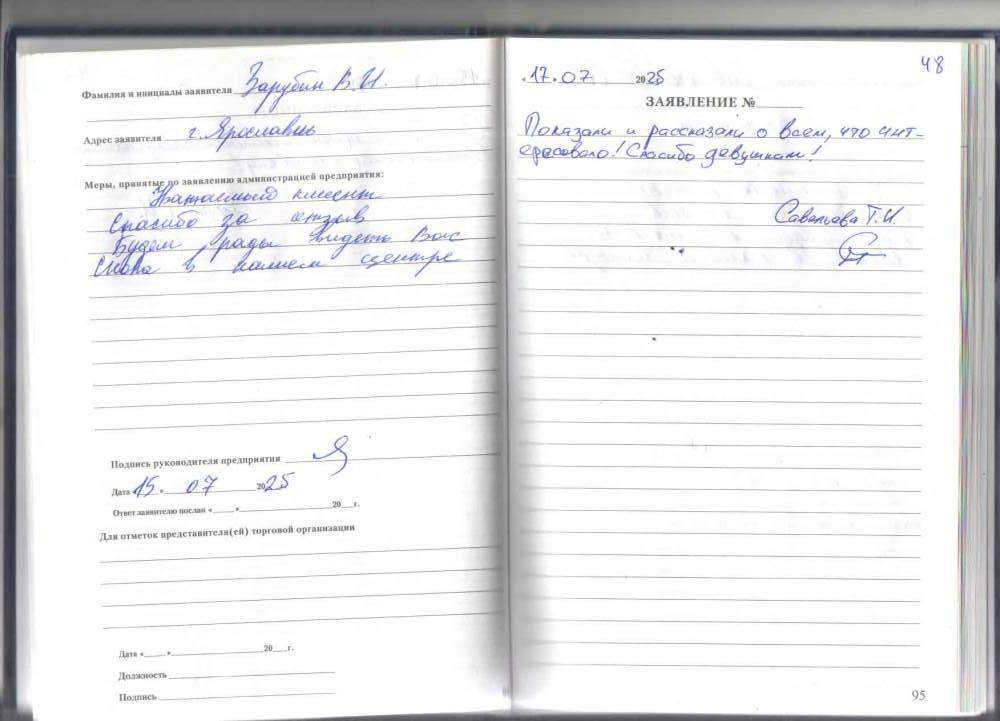 Фамилия и инициалы заявителя Зарубин В.И.
Адрес заявителя г. Ярославль
Меры, принятые по заявлению администрацией предприятия:
клиент
Спасибо за отзыв
Будем рады видеть Вас
снова в нашем центре
Подпись руководителя предприятия
Дата «15» 07 2025
Ответ заявителю послан «____»____ 20__г.
Для отметок представителя(ей) торговой организации
Дата «____»____ 20__г.
Должность
Подпись
48
«17» 07 2025
ЗАЯВЛЕНИЕ №
Показали и рассказали о всем, что инт-
ересовало! Спасибо девушкам!
Савельева Т.И.
95